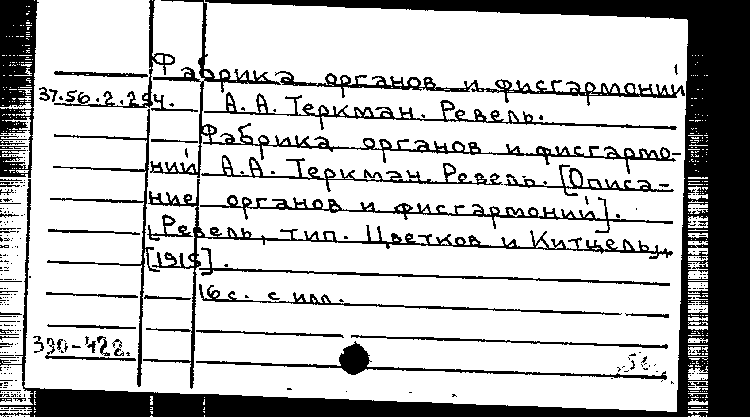 Фабрика органов и фисгармоний
37.56.2.254. А. А. Теркман. Ревель.
Фабрика органов и фисгармо-
ний А. А. Теркман. Ревель. [Описа-
ние органов и фисгармоний].
Ревель, тип. Цветков и Китцель,
[1915].
16 с. с илл.
330-422.